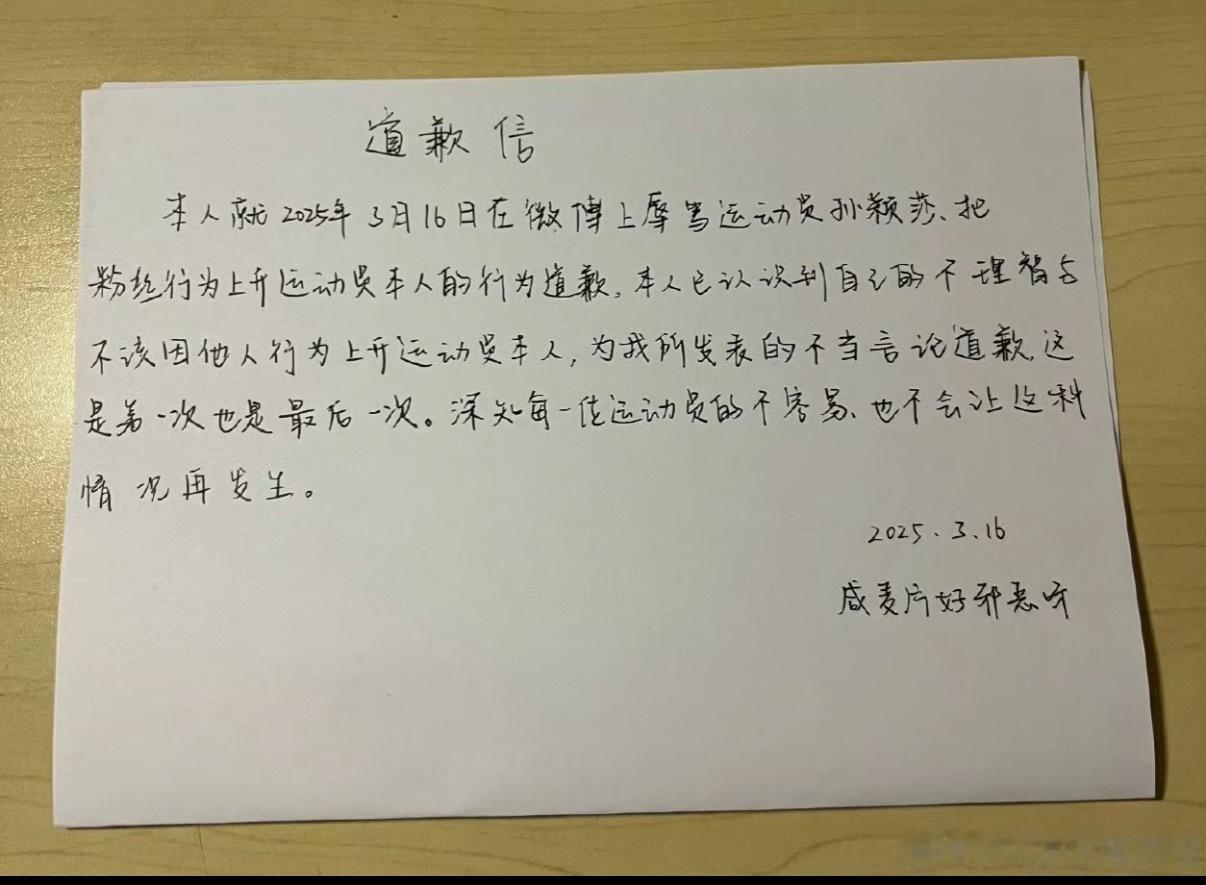 道歉信
本人就2025年3月16日在微博上辱骂运动员孙颖莎、把
粉丝行为上升运动员本人的行为道歉,本人已认识到自己的不理智与
不该因他人行为上升运动员本人,为我所发表的不当言论道歉,这
是第一次也是最后一次。深知每一位运动员的不容易、也不会让这种
情况再发生。
2025.3.16
咸麦片好邪恶呀